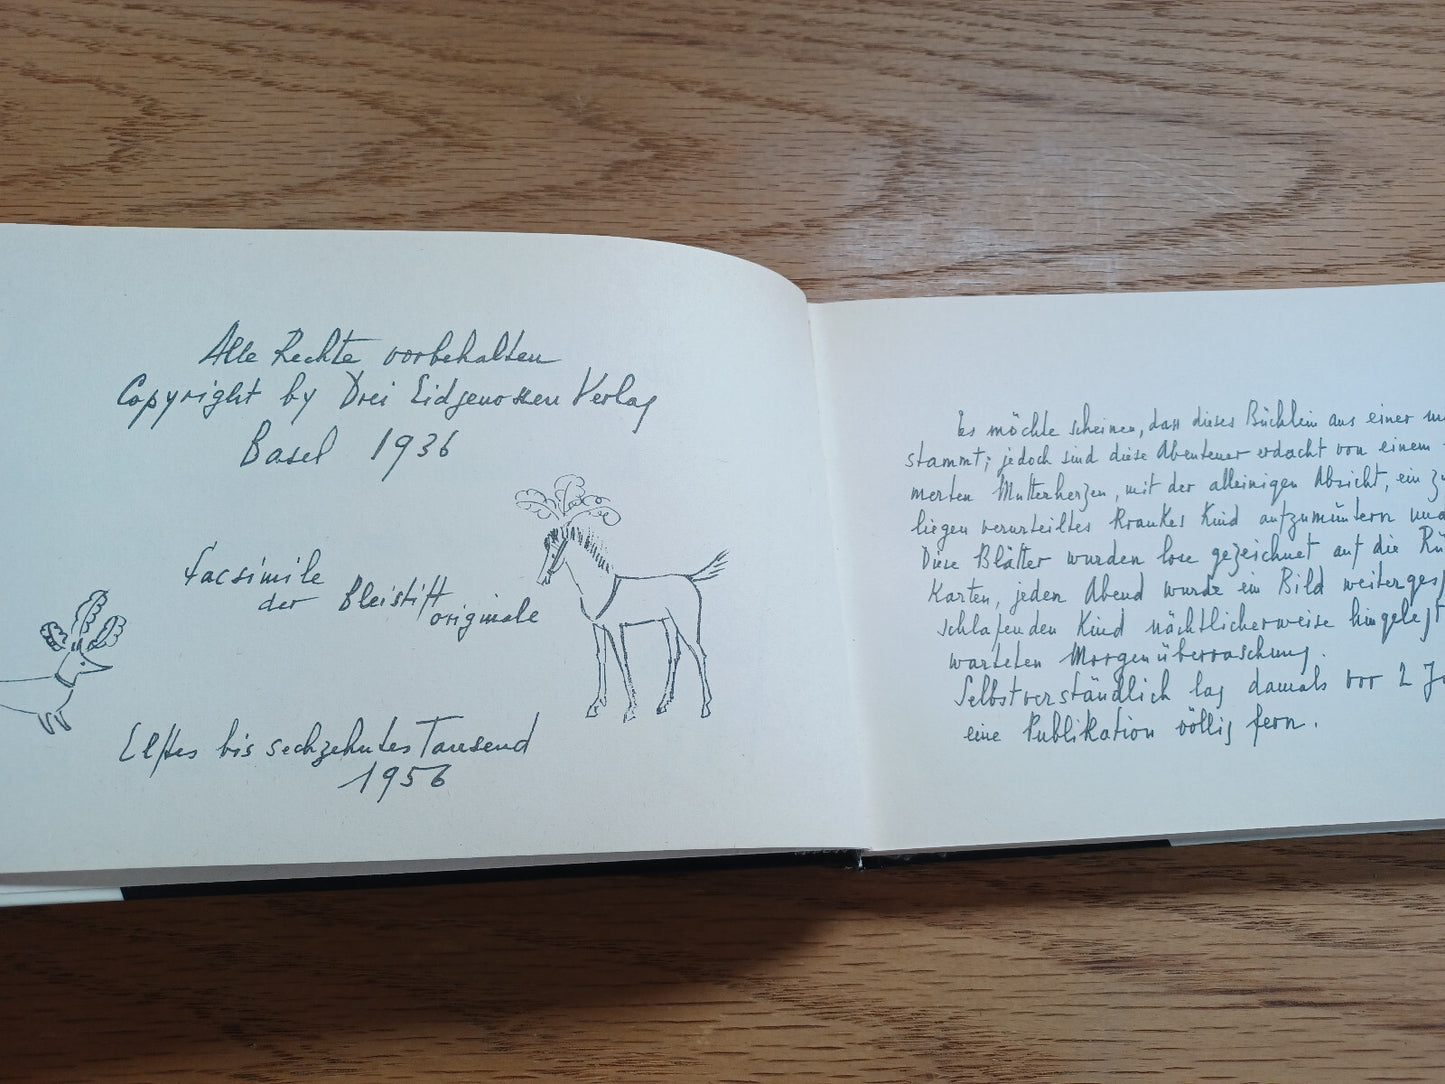 Alle Rechte vorbehalten
Copyright by Drei Eidgenossen Verlag
Basel 1936
Facsimile
der Bleistift
originale
Elftes bis sechzehntes Tausend
1956
Es möchte scheinen, dass dieses Büchlein aus einer
stammt; jedoch sind diese Abenteuer erdacht von einem
merten Mutterherzen, mit der alleinigen Absicht, ein
liegen verurteiltes Krankes Kind aufzumuntern und
Diese Blätter wurden lose gezeichnet auf die
Karten, jeden Abend wurde ein Bild
schlafenden Kind nächtlicherweise hingelegt
warteten Morgenüberraschung.
Selbstverständlich lag damals vor 2
eine Publikation völlig fern.